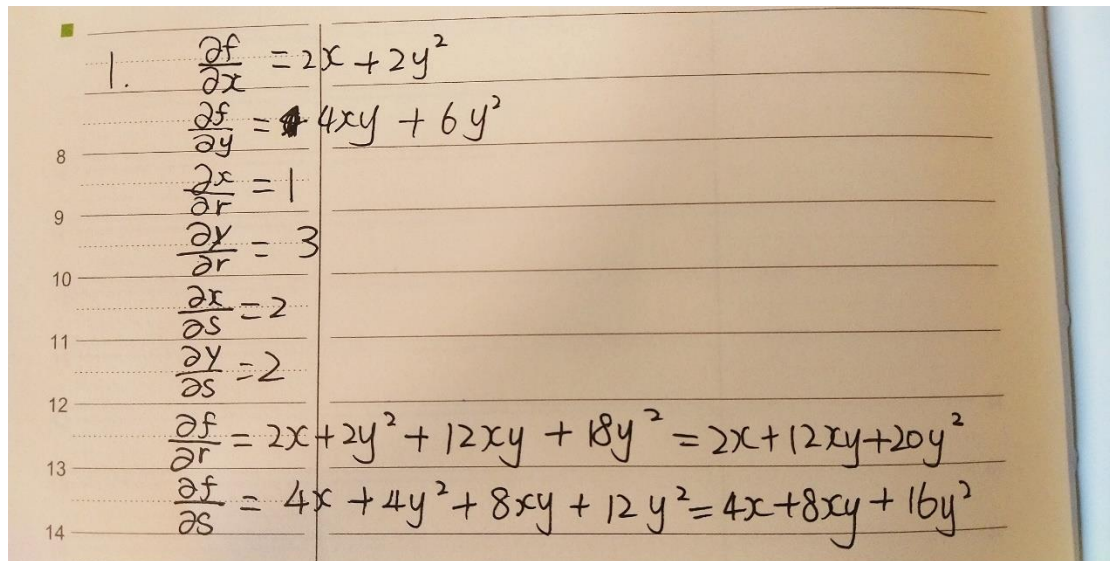 1. ∂f/∂x = 2x + 2y²
∂f/∂y = 4xy + 6y²
8
∂x/∂r = 1
9
∂y/∂r = 3
10
∂x/∂s = 2
11
∂y/∂s = 2
12
∂f/∂r = 2x + 2y² + 12xy + 18y² = 2x + 12xy + 20y²
13
∂f/∂s = 4x + 4y² + 8xy + 12y² = 4x + 8xy + 16y²
14